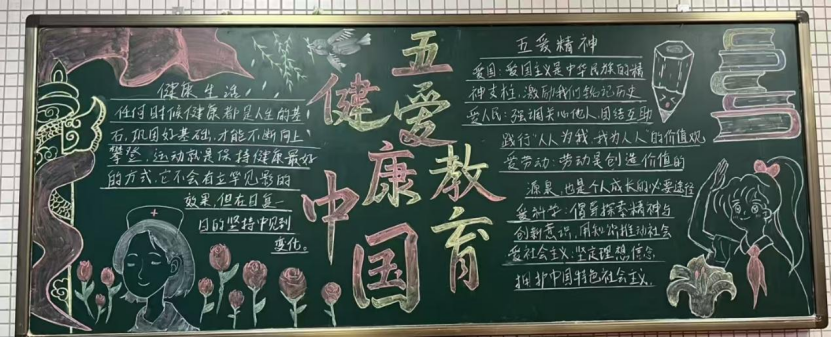 健康生活
任何时候健康都是人生的基
石,巩固好基础,才能不断向上
攀登,运动就是保持健康最好
的方式,它不会有立竿见影的
效果,但在日复一
日的坚持中见到
变化。
健康中国
五爱教育
五爱精神
爱国:爱国主义是中华民族的精
神支柱,激励我们铭记历史
爱人民:强调关心他人,团结互助
践行“人人为我,我为人人”的价值观
爱劳动:劳动是创造价值的
源泉,也是个人成长的必要途径
爱科学:倡导探索精神与
创新意识,用知识推动社会
爱社会主义:坚定理想信念
拥护中国特色社会主义.